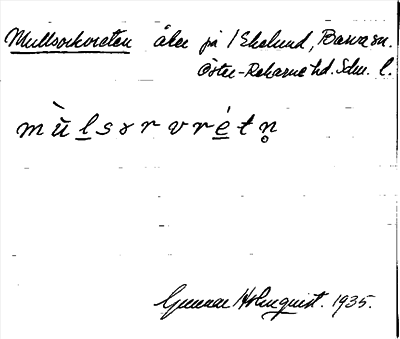 Mullsorkvreten åker på 1 Ekelund, Barva sn.
Öster-Rekarne hd. Sdm. l.
mù̈lsorvrétn̥
Gunnar Holmquist. 1935.